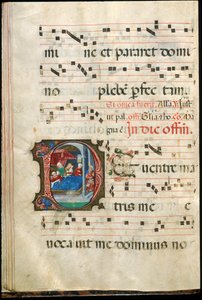 mi ne et pararet domi
no plebē pfec tam.
In die offm̄
D e uentre ma
tris me e
uoca uit me dominus no